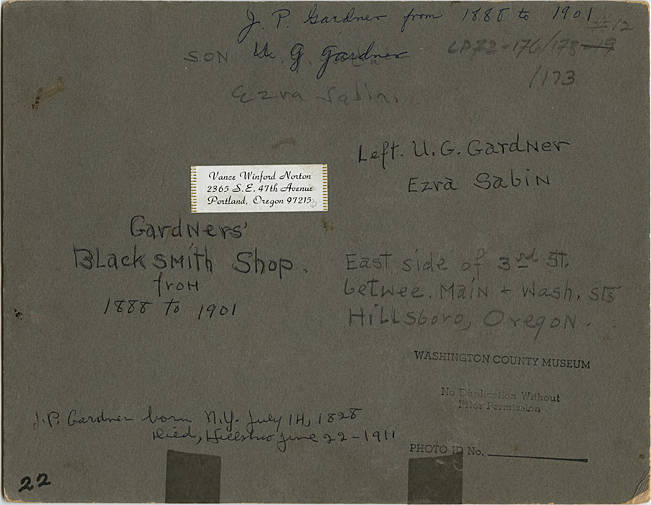 J. P. Gardner from 1888 to 1901
SON U. G. Gardner
Ezra Sabin.
LP72-176/178-
/173
Left. U.G. Gardner
Ezra Sabin
Vance Winford Norton
2365 S. E. 47th Avenue
Portland, Oregon 97215
Gardners'
Blacksmith Shop.
from
1888 to 1901
East side of 3rd St.
betwee. Main + Wash. Sts
Hillsboro, Oregon.
WASHINGTON COUNTY MUSEUM
No Duplication Without
Prior Permission
PHOTO ID No.
J.P. Gardner born N.Y. July 14, 1828
Died, Hillsboro June 22-1911
22